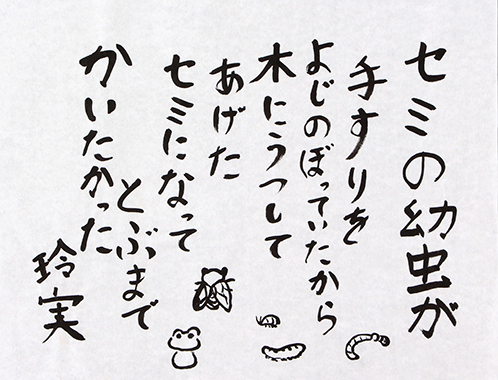 セミの幼虫が
手すりを
よじのぼっていたから
木にうつして
あげた
セミになって
とぶまで
かいたかった
玲実